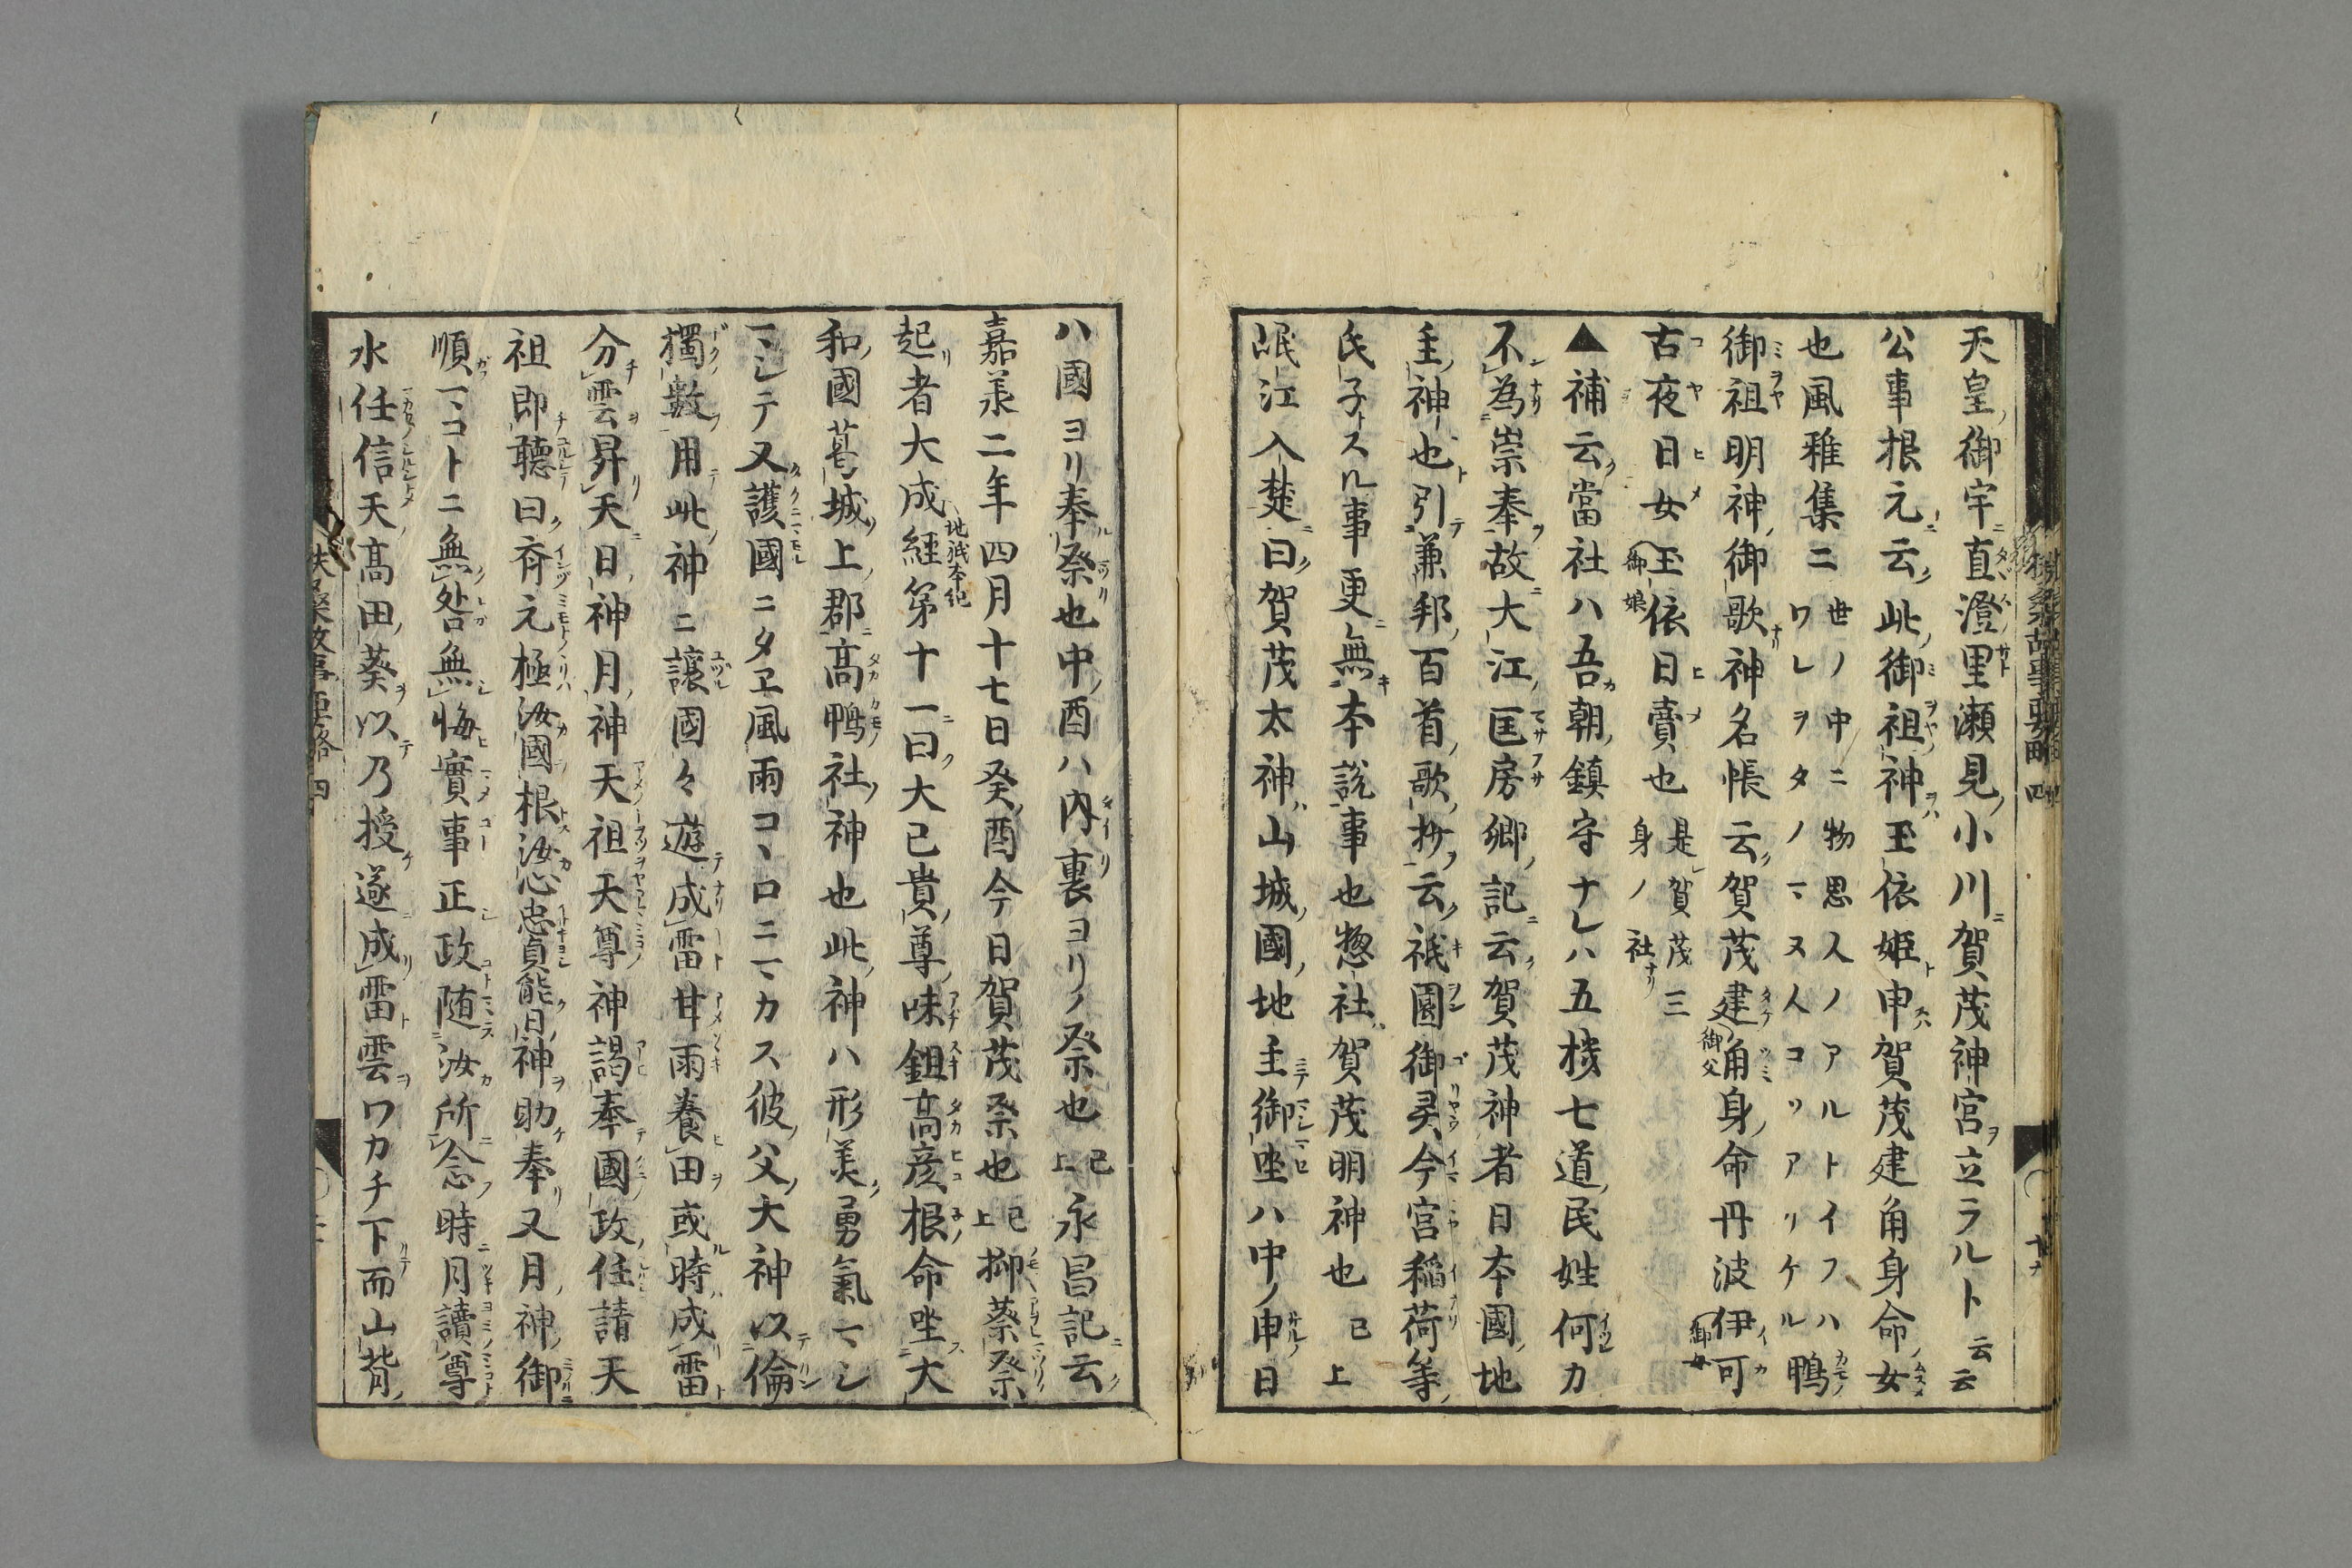 天皇御宇直澄里瀬見小川賀茂神宮立ラルト云云
公事根元云此御祖神玉依姫申賀茂建角身命女
也風雅集ニ世ノ中ニ物思人ノアルトイフハ
ワレヲタノマヌ人コソアリケル鴨
御祖明神御歌神名帳云賀茂建角身命丹波伊可
古夜日女玉依日賣也是賀茂三
身ノ社
▲補云當社ハ吾朝鎮守ナレハ五機七道民姓何カ
不為崇奉故大江匡房卿記云賀茂神者日本國地
主神也引兼邦百首歌抄云祇園御灵今宮稲荷等
氏子トスル事更無本説事也惣社賀茂明神也已上
岷江入楚曰賀茂太神山城國地主御坐ハ中ノ申日
ハ國ヨリ奉祭也中酉ハ内裏ヨリノ祭也已上永昌記云
嘉羕二年四月十七日癸酉今日賀茂祭也已上抑葵祭
起者大成經第十一曰大已貴尊味鉏高彦根命坐大
地祇本紀
和國葛城上郡高鴨社神也此神ハ形美勇氣マシ
マシテ又護國ニタヱ風雨コヽロニマカス彼父大神以倫
獨數用此神ニ讓國々遊成雷甘雨養田或時成雷
分雲昇天日神月神天祖天尊神謁奉國政任請天
祖即聴曰斉元極汝國根汝心忠貞能日神助奉又月神御
順マコトニ無咎無悔實事正政随汝所念時月讀尊
水任信天高田葵以乃授遂成雷雲ワカチ下而山背